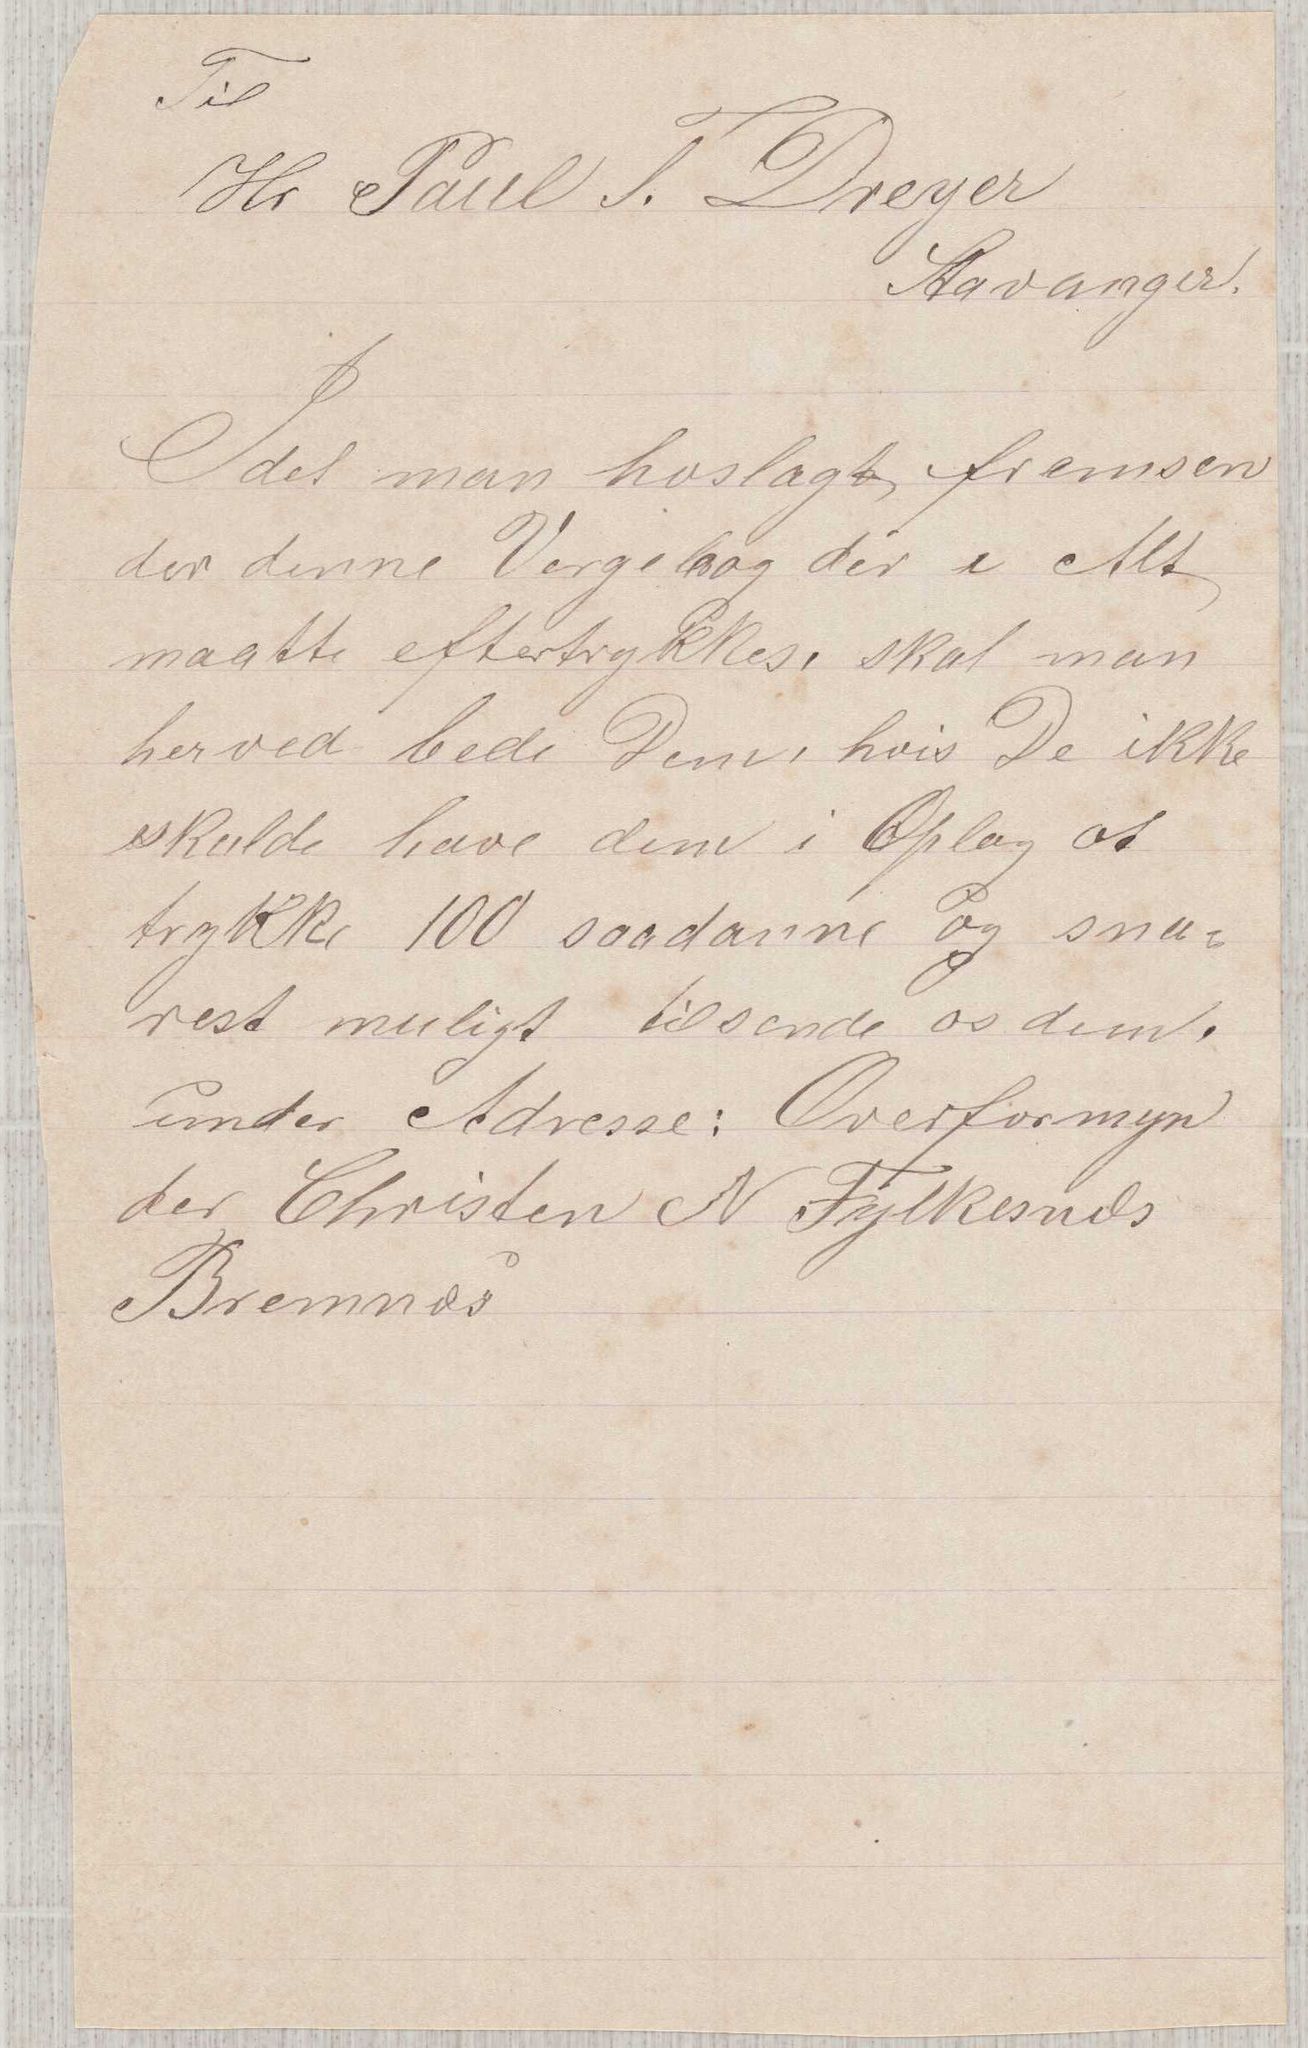 Til
Hr Paul T. Dreyer
Stavanger.
Idet man hoslagt fremsen
der denne Vergebog der i Alt
maatte eftertrykkes, skal man
herved bede Dem, hvis De ikke
skulde have dem i Oplag at
trykke 100 saadanne og sna-
rest muligt tilsende os dem,
under Adresse: Overformyn
der Christen N Fylkesnæs
Bremnæs